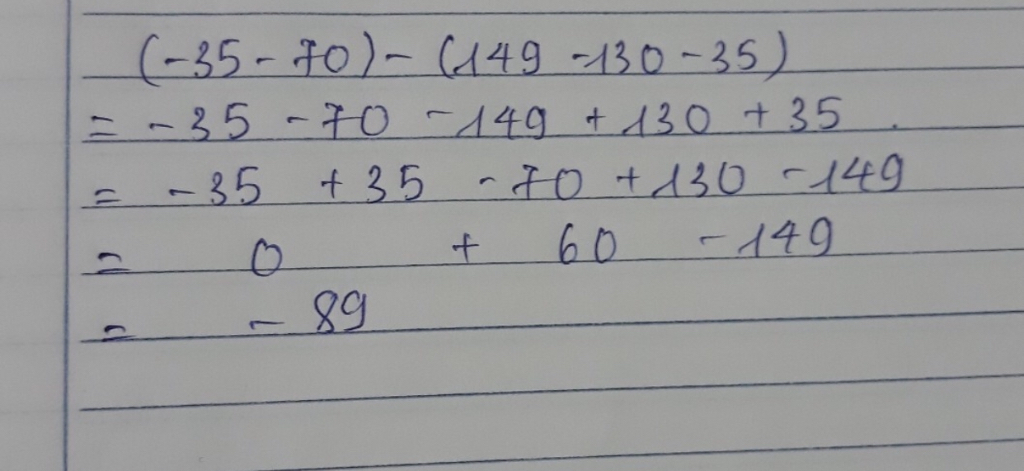 (-35 - 70) - (149 - 130 - 35)
= -35 - 70 - 149 + 130 + 35.
= -35 + 35 - 70 + 130 - 149
= 0 + 60 - 149
= - 89